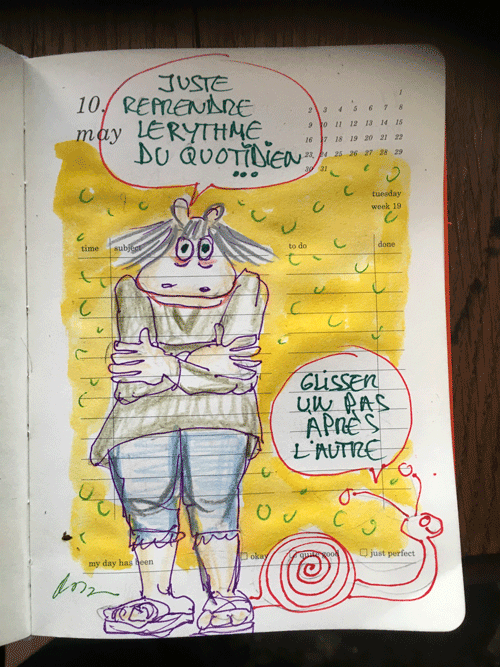 JUSTE
REPRENDRE
LE RYTHME
DU QUOTIDIEN
...
10.
may
1
2 3 4 5 6 7 8
9 10 11 12 13 14 15
16 17 18 19 20 21 22
23 24 25 26 27 28 29
30 31
tuesday
week 19
time subject to do done
GLISSER
UN PAS
APRÈS
L'AUTRE
my day has been okay quite good just perfect